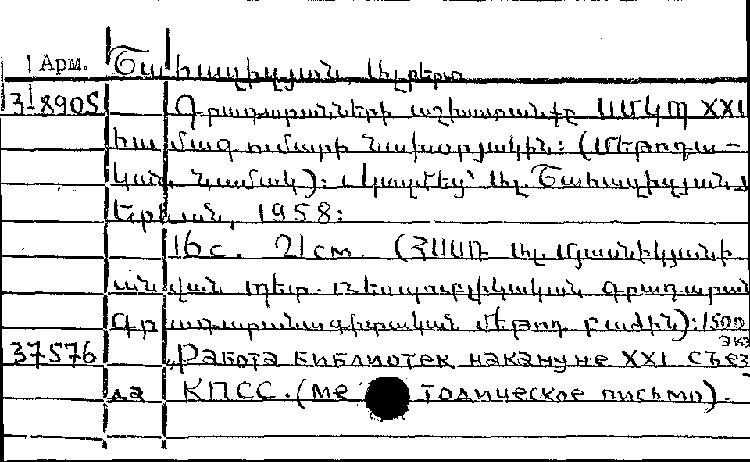 Арм. Շահազիզյան, Ալբերտ
3-8905 Գրադարանների աշխատանքը ՍՄԿՊ XXI
համագումարի նախօրյակին: (Մեթոդա-
կան նամակ): Կազմեց՝ Ալ. Շահազիզյան.
Երևան, 1958:
16 с. 21 см. (ՀՍՍՌ Ալ. Մյասնիկյանի
անվան պետ. ռեսպուբլիկական գրադարան
Գրադարանագիտական մեթոդ. բաժին): 1500
экз
37576 „Работа библиотек накануне XXI съез
да КПСС. (методическое письмо).